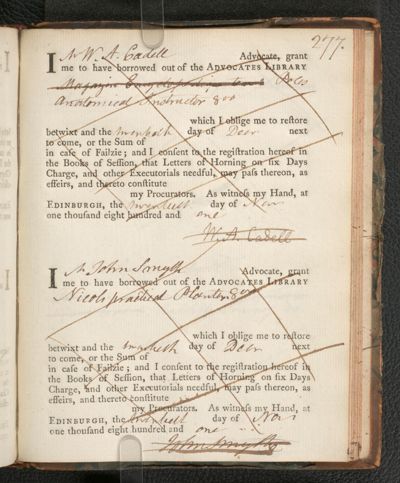 277.
I Mr W. A. Cadell Advocate, grant
me to have borrowed out of the ADVOCATES LIBRARY
Anatomical Instructor 8vo
which I oblige me to reſtore
betwixt and the day of Decr next
to come, or the Sum of
in caſe of Failzie; and I conſent to the regiſtration hereof in
the Books of Seſſion, that Letters of Horning on ſix Days
Charge, and other Executorials needful, may paſs thereon, as
effeirs, and thereto conſtitute
my Procurators. As witneſs my Hand, at
EDINBURGH, the day of Novr
one thouſand eight hundred and one
W. A. Cadell
I Mr John Smyth Advocate, grant
me to have borrowed out of the ADVOCATES LIBRARY
Nicols practical Planter 8vo
which I oblige me to reſtore
betwixt and the day of Decr next
to come, or the Sum of
in caſe of Failzie; and I conſent to the regiſtration hereof in
the Books of Seſſion, that Letters of Horning on ſix Days
Charge, and other Executorials needful, may paſs thereon, as
effeirs, and thereto conſtitute
my Procurators. As witneſs my Hand, at
EDINBURGH, the day of Novr
one thouſand eight hundred and one
John Smyth